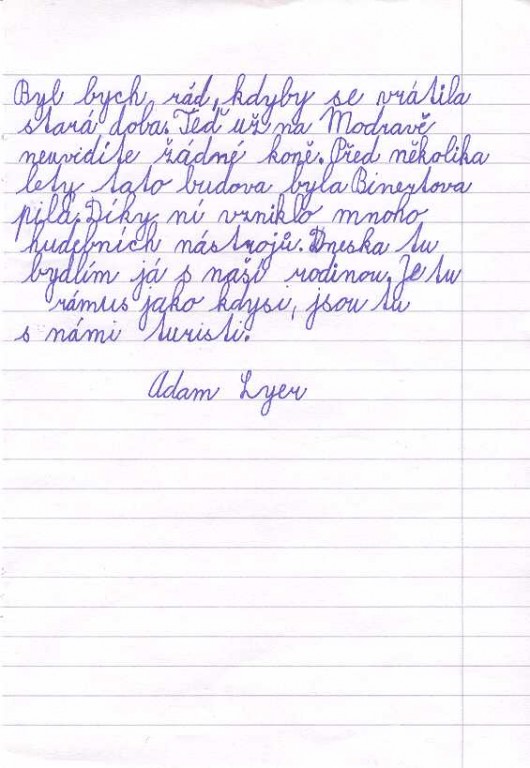 Byl bych rád, kdyby se vrátila
stará doba. Teď už na Modravě
neuvidíte žádné koně. Před několika
lety tato budova byla Binertova
pila. Díky ní vzniklo mnoho
hudebních nástrojů. Dneska tu
bydlím já s naší rodinou. Je tu
rámus jako kdysi, jsou tu
s námi turisti.
Adam Lyer